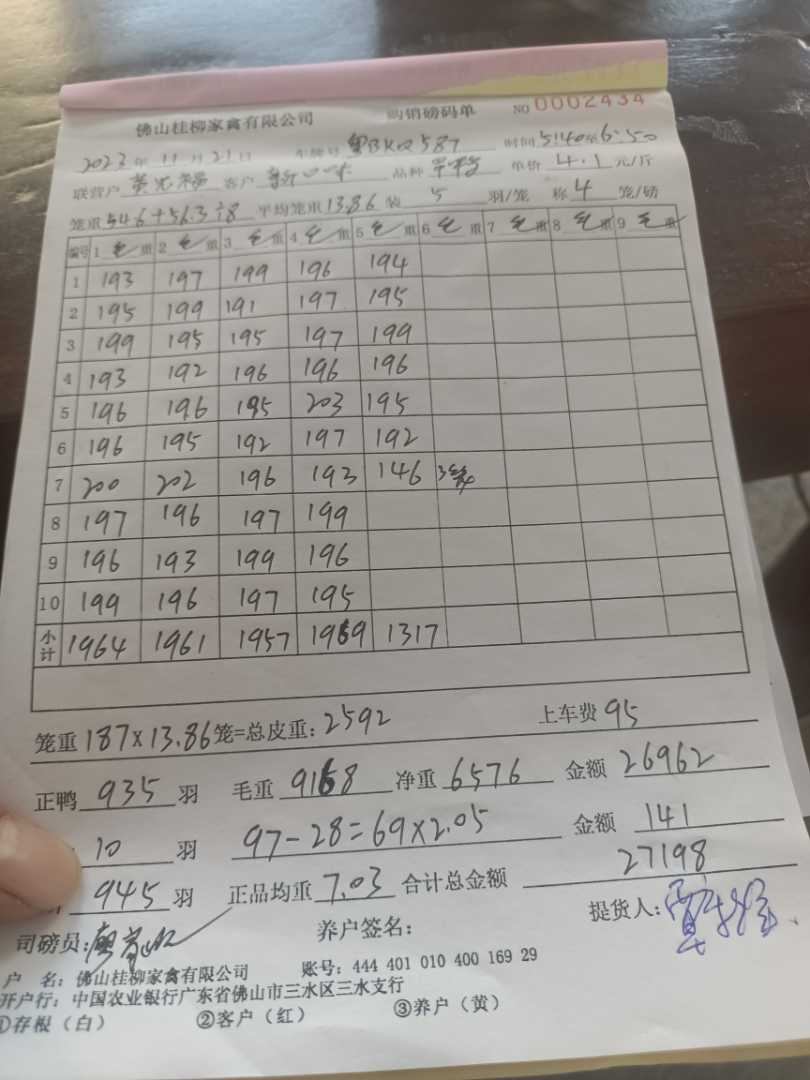 佛山桂柳家禽有限公司 购销磅码单 NO 0002434
2023年11月21日 车牌号 粤BKQ587 时间 5:40至6:50
联营户 客户 新口味 品种 单价 4.1 元/斤
笼重 54.6+56.3÷8 平均笼重 13.86 装 5 羽/笼 称 4 笼/磅
编号 1 毛重 2 毛重 3 毛重 4 毛重 5 毛重 6 毛重 7 毛重 8 毛重 9 毛重
1 193 197 199 196 194
2 195 199 191 197 195
3 199 195 195 197 199
4 193 192 196 196 196
5 196 196 195 203 195
6 196 195 192 197 192
7 200 202 196 193 146 3笼
8 197 196 197 199
9 196 193 199 196
10 199 196 197 195
小计 1964 1961 1957 1969 1317
笼重 187×13.86 笼=总皮重: 2592 上车费 95
正鸭 935 羽 毛重 9168 净重 6576 金额 26962
10 羽 97-28=69×2.05 金额 141
945 羽 正品均重 7.03 合计总金额 27198
司磅员: 养户签名: 提货人:
户 名: 佛山桂柳家禽有限公司 账号: 444 401 010 400 169 29
开户行: 中国农业银行广东省佛山市三水区三水支行
①存根(白) ②客户(红) ③养户(黄)